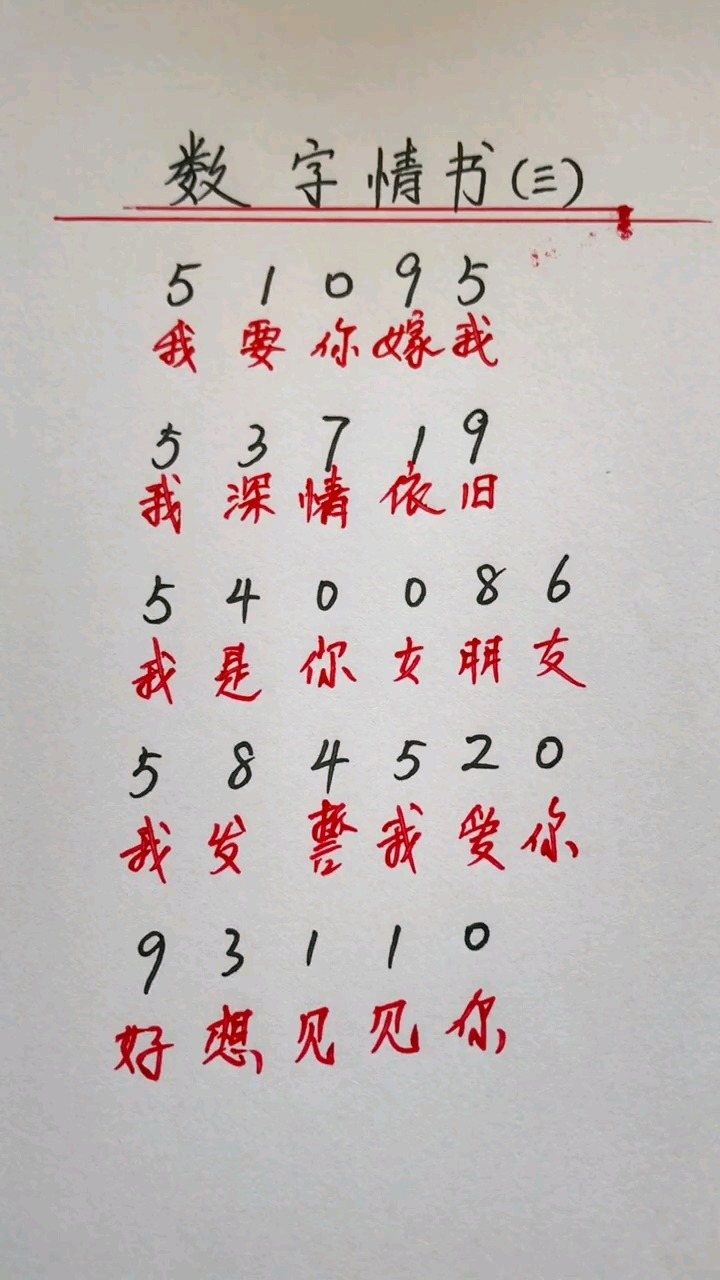 数字情书(三)
5 1 0 9 5
我要你嫁我
5 3 7 1 9
我深情依旧
5 4 0 0 8 6
我是你女朋友
5 8 4 5 2 0
我发誓我爱你
9 3 1 1 0
好想见见你